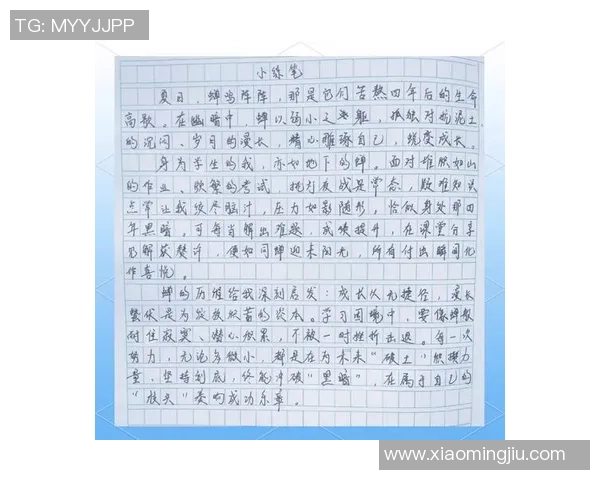 TG: MYYJJPP
小练笔
夏日,蝉鸣阵阵,那是它们苦熬四年后的生命
高歌。在幽暗中,蝉以弱小之躯,孤独对抗泥土
的沉闷、岁月的漫长,精心雕琢自己,蜕变成长。
身为学生的我,亦如地下的蝉。面对堆积如山
的作业、频繁的考试,挑灯夜战是常态,疑难知识
点常让我绞尽脑汁,压力如影随形,恰似身处那四
年黑暗。可每当解出难题,成绩提升,在课堂分享
见解获赞许,便如同蝉迎来阳光,所有付出瞬间化
作喜悦。
蝉的历程给我深刻启发:成长从无捷径,漫长
蛰伏是为发放积蓄的资本。学习困境中,要像蝉般
耐住寂寞、潜心积累,不被一时挫折击退。每一次
努力,无论多微小,都是在为未来“破土”积攒力
量,坚持到底,终能冲破“黑暗”,在属于自己的
“枝头”奏响成功乐章。
www.xiaomingjiu.com